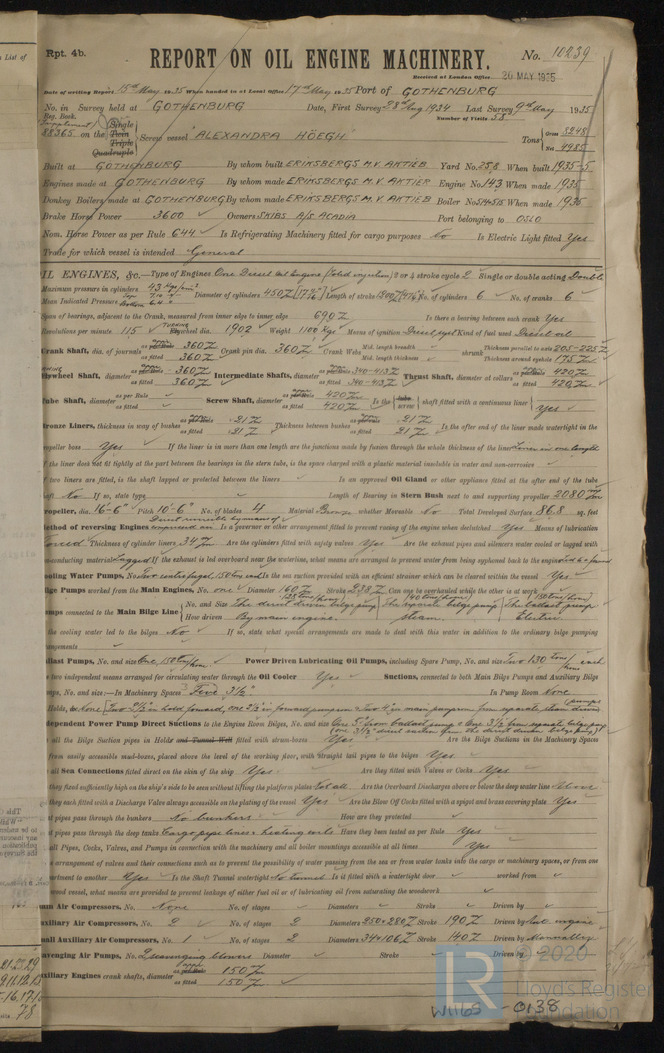 Rpt. 4b.
REPORT ON OIL ENGINE MACHINERY.
No. 10239
Received at London Office 20 MAY 1935
Date of writing Report 15th May 1935 When handed in at Local Office 17th May 1935 Port of GOTHENBURG
No. in Survey held at GOTHENBURG Date, First Survey 28th Aug 1934 Last Survey 9th May 1935
Reg. Book. Number of Visits 58
88365 on the Single Twin Triple Quadruple Screw vessel "ALEXANDRA HÖEGH" Tons Gross 8248 Net 4985
Built at GOTHENBURG By whom built ERIKSBERGS M.V. AKTIEB Yard No. 258 When built 1935-5
Engines made at GOTHENBURG By whom made ERIKSBERGS M.V. AKTIEB Engine No. 143 When made 1935
Donkey Boilers made at GOTHENBURG By whom made ERIKSBERGS M.V. AKTIEB Boiler No. 514-515 When made 1935
Brake Horse Power 3600 Owners SKIBS A/S ACADIA Port belonging to OSLO
Nom. Horse Power as per Rule 644 Is Refrigerating Machinery fitted for cargo purposes No Is Electric Light fitted Yes
Trade for which vessel is intended General
OIL ENGINES, &c.—Type of Engines One Diesel oil Engine (solid injection) 2 or 4 stroke cycle 2 Single or double acting Double
Maximum pressure in cylinders 43 Diameter of cylinders 450 Length of stroke 1200 No. of cylinders 6 No. of cranks 6
Mean Indicated Pressure
Span of bearings, adjacent to the Crank, measured from inner edge to inner edge 690 Is there a bearing between each crank Yes
Revolutions per minute 115 Flywheel dia. 1902 Weight 1100 Kgs Means of ignition Diesel Kind of fuel used Diesel oil
Crank Shaft, dia. of journals as fitted 360 Crank pin dia. 360 Crank Webs Mid. length breadth Mid. length thickness shrunk Thickness parallel to axis 205-225 Thickness around eyehole 175
Flywheel Shaft, diameter as fitted 360 Intermediate Shafts, diameter as fitted 340-413 Thrust Shaft, diameter at collars as fitted 420
Tube Shaft, diameter as per Rule as fitted Screw Shaft, diameter as fitted 420 Is the screw shaft fitted with a continuous liner Yes
Bronze Liners, thickness in way of bushes as fitted 21 Thickness between bushes as fitted 21 Is the after end of the liner made watertight in the
propeller boss Yes If the liner is in more than one length are the junctions made by fusion through the whole thickness of the liner Liner in one length
If the liner does not fit tightly at the part between the bearings in the stern tube, is the space charged with a plastic material insoluble in water and non-corrosive
If two liners are fitted, is the shaft lapped or protected between the liners Is an approved Oil Gland or other appliance fitted at the after end of the tube
shaft No If so, state type Length of Bearing in Stern Bush next to and supporting propeller 2080
Propeller, dia. 16'-6" Pitch 10'-6" No. of blades 4 Material Bronze whether Moveable No Total Developed Surface 86.8 sq. feet
Method of reversing Engines Is a governor or other arrangement fitted to prevent racing of the engine when declutched Yes Means of lubrication
Forced Thickness of cylinder liners 34 Are the cylinders fitted with safety valves Yes Are the exhaust pipes and silencers water cooled or lagged with
non-conducting material Lagged If the exhaust is led overboard near the waterline, what means are arranged to prevent water from being syphoned back to the engine
Cooling Water Pumps, No. Two centrifugal 150 tons Is the sea suction provided with an efficient strainer which can be cleared within the vessel Yes
Bilge Pumps worked from the Main Engines, No. one Diameter 160 Stroke 238 Can one be overhauled while the other is at work
Pumps connected to the Main Bilge Line No. and Size The direct driven bilge pump The separate bilge pump The ballast pump
How driven By main engine. steam. Electric
Is the cooling water led to the bilges No If so, state what special arrangements are made to deal with this water in addition to the ordinary bilge pumping
arrangements
Ballast Pumps, No. and size One, 150 tons/hour Power Driven Lubricating Oil Pumps, including Spare Pump, No. and size Two 130 tons/hour each
Are two independent means arranged for circulating water through the Oil Cooler Yes Suctions, connected to both Main Bilge Pumps and Auxiliary Bilge
Pumps, No. and size:—In Machinery Spaces Five 3½" In Pump Room None
In Holds, &c. None
Independent Power Pump Direct Suctions to the Engine Room Bilges, No. and size
Are all the Bilge Suction pipes in Holds and Tunnel Well fitted with strum-boxes Yes Are the Bilge Suctions in the Machinery Spaces
from easily accessible mud-boxes, placed above the level of the working floor, with straight tail pipes to the bilges Yes
Are all Sea Connections fitted direct on the skin of the ship Yes Are they fitted with Valves or Cocks Yes
Are they fixed sufficiently high on the ship's side to be seen without lifting the platform plates Not all Are the Overboard Discharges above or below the deep water line Above
Are they each fitted with a Discharge Valve always accessible on the plating of the vessel Yes Are the Blow Off Cocks fitted with a spigot and brass covering plate Yes
What pipes pass through the bunkers No bunkers How are they protected
What pipes pass through the deep tanks Cargo pipe lines & heating coils Have they been tested as per Rule Yes
Are all Pipes, Cocks, Valves, and Pumps in connection with the machinery and all boiler mountings accessible at all times Yes
Is the arrangement of valves and their connections such as to prevent the possibility of water passing from the sea or from water tanks into the cargo or machinery spaces, or from one
compartment to another Yes Is the Shaft Tunnel watertight No tunnel Is it fitted with a watertight door worked from
If a wood vessel, what means are provided to prevent leakage of either fuel oil or of lubricating oil from saturating the woodwork
Main Air Compressors, No. None No. of stages Diameters Stroke Driven by
Auxiliary Air Compressors, No. 2 No. of stages 2 Diameters 250+280 Stroke 190 Driven by
Small Auxiliary Air Compressors, No. 1 No. of stages 2 Diameters 34+106 Stroke 140 Driven by Manually
Scavenging Air Pumps, No. 2 scavenging blowers Diameter Stroke Driven by
Auxiliary Engines crank shafts, diameter as fitted 150
© 2020
LR
Lloyd's Register
Foundation
W1165-0138